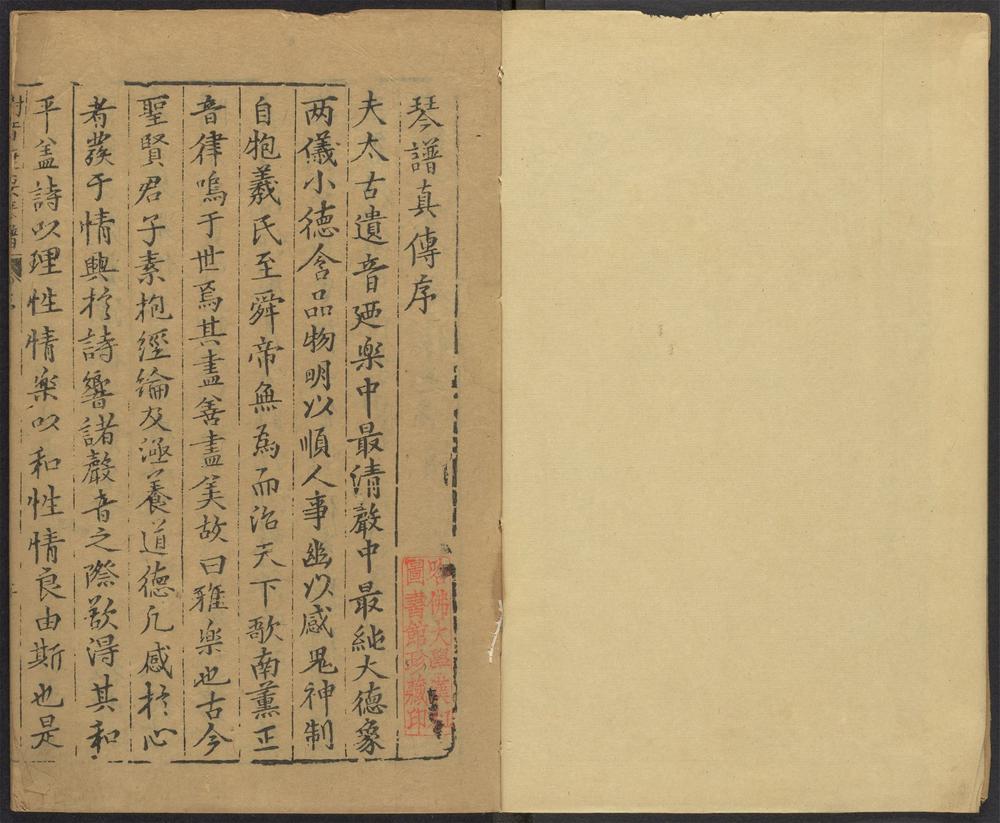 琴譜真傳序
夫太古遺音廼楽中最清聲中最純大德象
两儀小德含品物明以順人事幽以感鬼神制
自炮羲氏至舜帝無為而治天下歌南薫正
音律鳴于世焉其盡善盡美故曰雅樂也古今
聖賢君子素抱經綸及涵養道德凡感於心
者發于情興於詩響諸聲音之際歘得其和
平盖詩以理性情楽以和性情良由斯也是
哈佛大學漢和
圖書館珍藏印